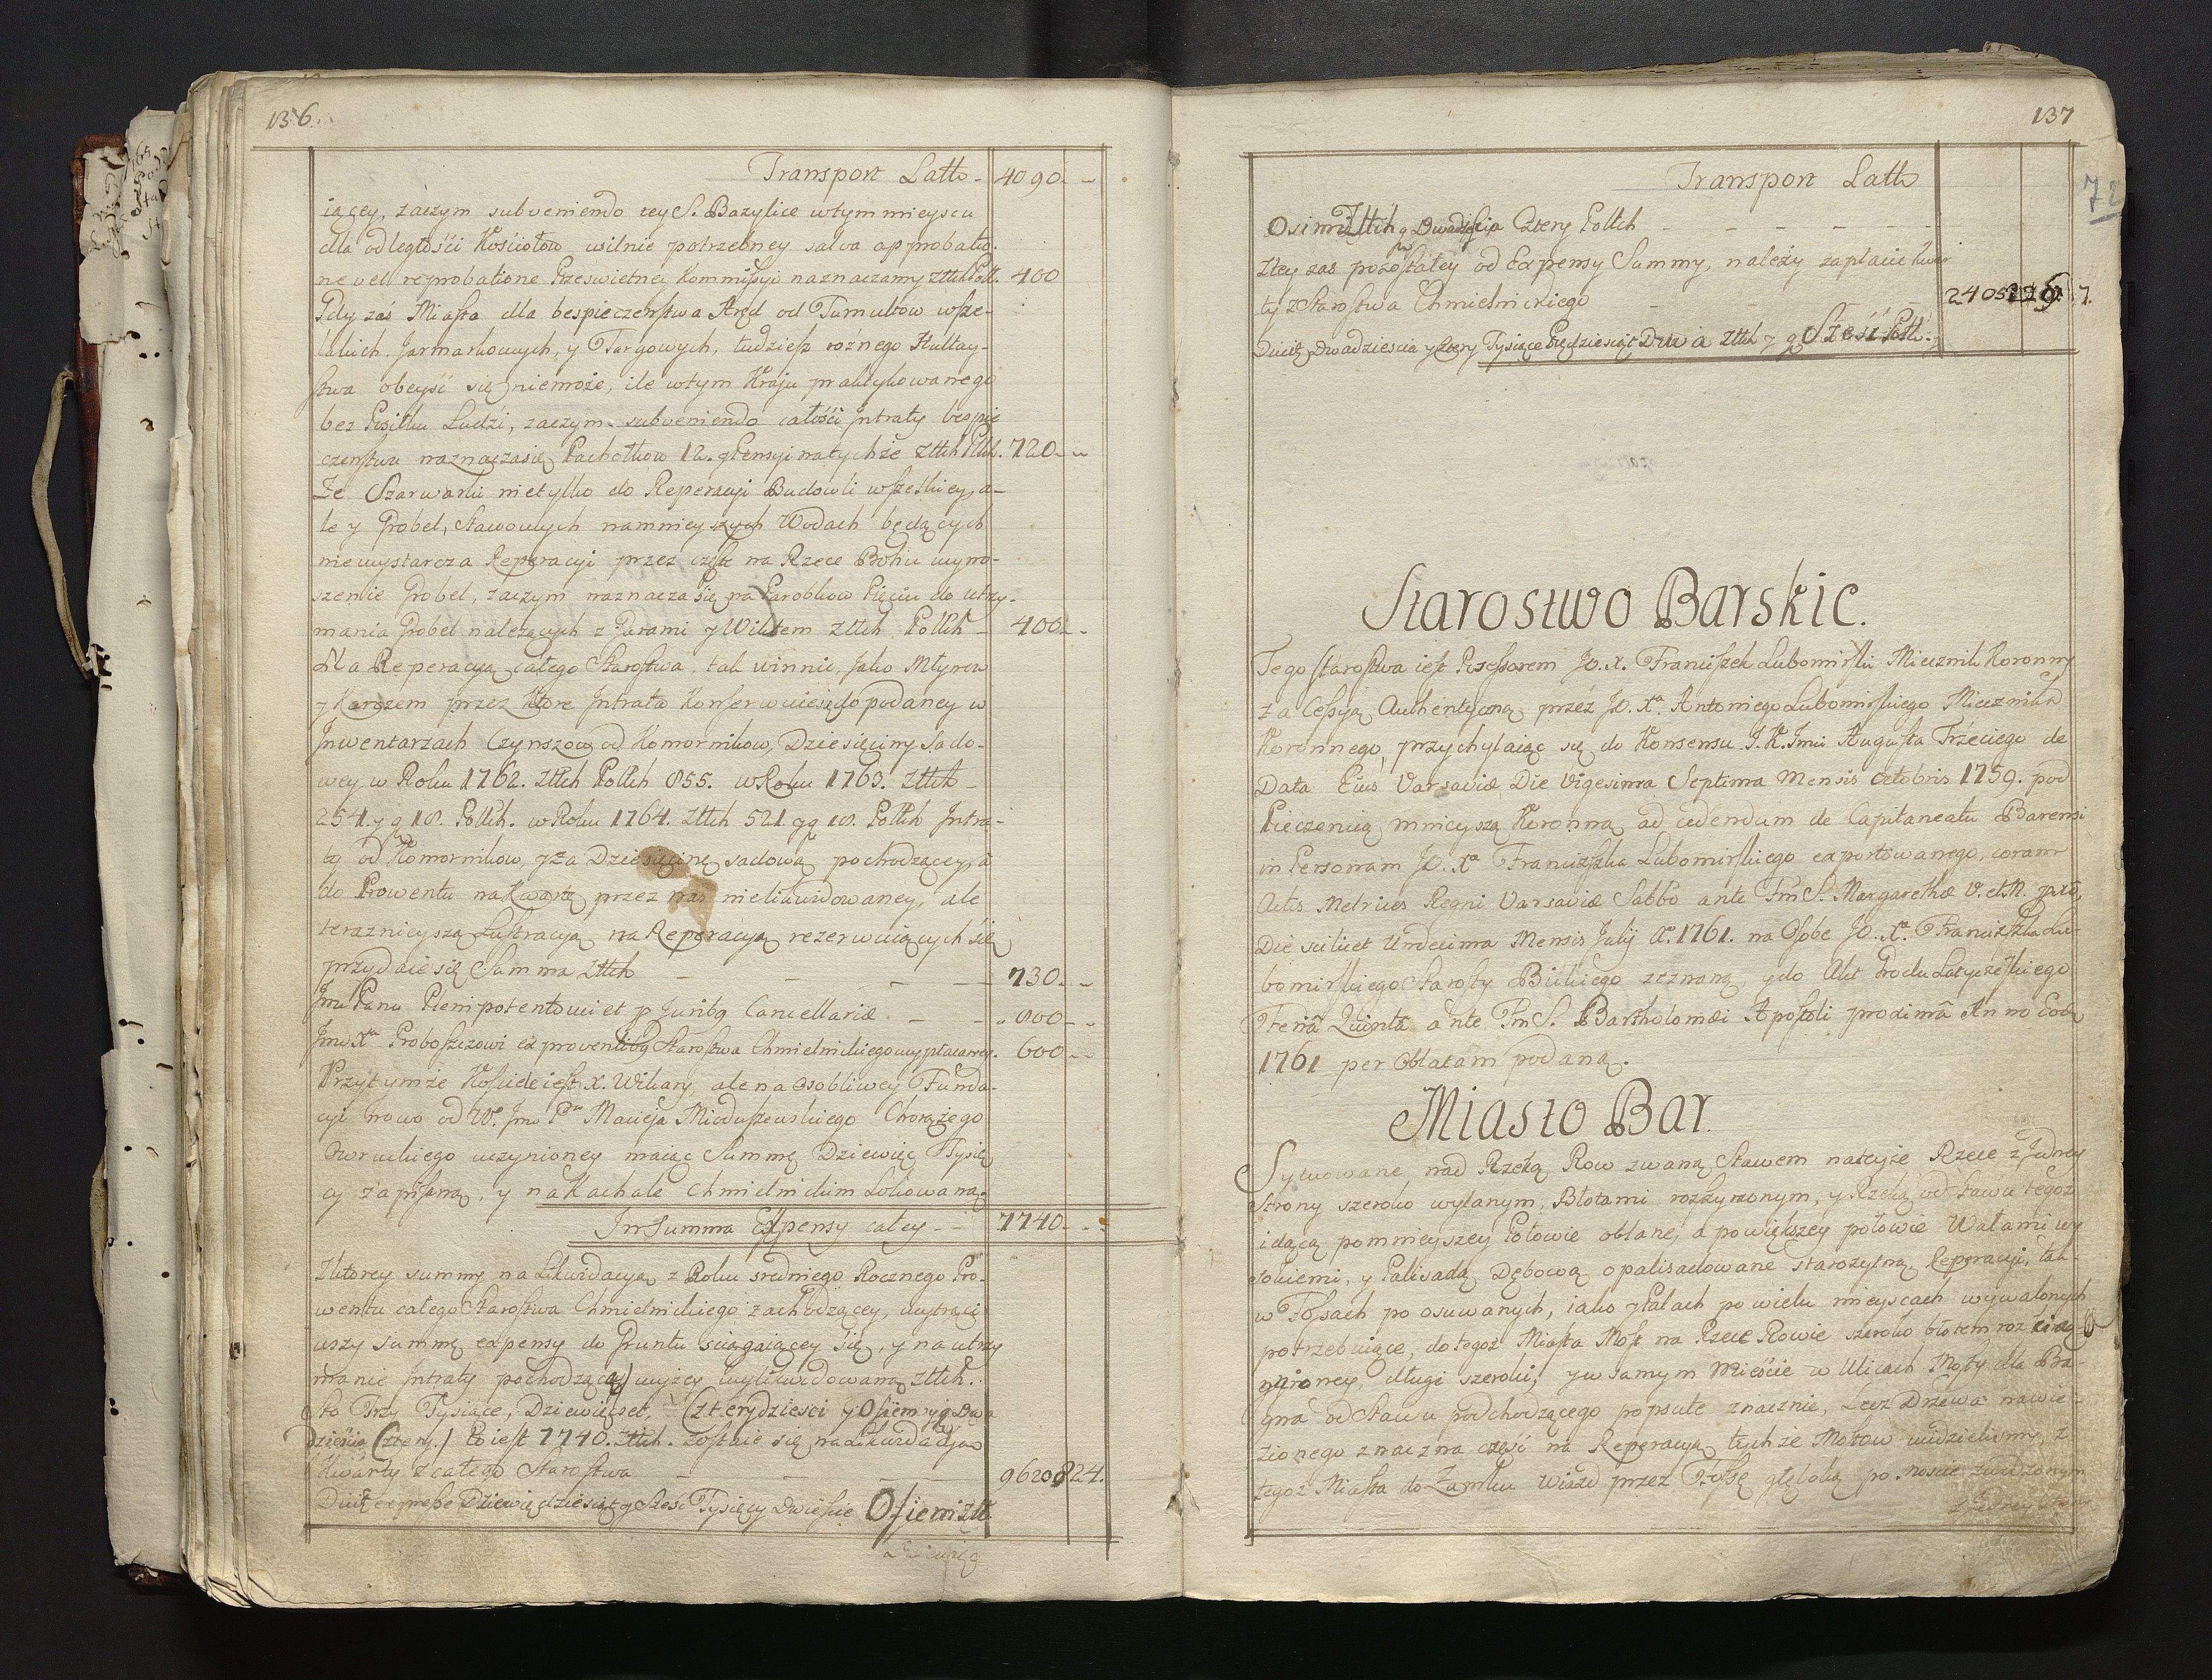 136.
Transport Latt - 4090 - -
iącey, zaczym subveniendo tey S. Bazylice wtym mieyscu
dla odległości Kościołow, wilnie potrzebney salva approbatio-
ne vel reprobatione Prześwietney Kommissyi naznaczamy Złtch Pol. 400
Gdy zaś Miasta dla bespieczeństwa Aręd od Tumultow wsze-
lakich Jarmarkowych, y Targowych, tudziesz rożnego Hultay-
stwa obeyść się niemoże, ile wtym Kraju praktykowanego
bez Posiłku Ludzi, zaczym subveniendo całości Jntraty bespie
czenstwu naznaczasię Pachołkow 12. y Pensyi natychże Złtch Polch. 720 - -
Ze Szarwarki nietylko do Reperacyi Budowli wszelkiey, a-
le y Grobel, Stawowych namnieyszych Wodach będących
niewystarcza Reperacyi przez częste na Rzece Bohu wyno-
szenie Grobel, zaczym naznacza się na Parobkow Pięciu do utrzy-
mania Grobel należących z Parami y Wiktem Złtch Polkch - 400 - -
Na Reperacyą całego Starostwa, tak winnic, Jako Młynow
y Karczem przez ktore Jntrata Konserwuiesię do podaney w
Jnwentarzach Czynszow od Komornikow, Dziesięciny Sado-
wey w Roku 1762. Złtch Polkch 855. w Roku 1763. Złtch -
254. y g 18. Polkch. w Roku 1764. Złtch 521 y g 18. Polkch Jntra-
ty od Komornikow y za Dziesięcinę sadową pochodzącey, a
do Prowentu na Kwartę przez nas nielikwidowaney, ale
teraznieyszą Lustracyą na Reperacyą rezerwuiących się
przydaie się Summa Złtch - - - 730 - -
Jmu Panu Plenipotentowi et p Juribq Cancellariæ - - 800 - -
Jmu Xu Proboszczowi ex proventibq Starostwa Chmielnickiego wypłacaney. 600 - -
Przytymże Kościele iest X. Wikary, ale na osobliwey Funda-
cyi nowo od W. Jmu Pu Macieja Mioduszewskiego Chorążego
Owruckiego uczynioney maiąc Summę Dziewięć Tysię
cy zapisaną, y na Kachale Chmielnickim Lokowaną.
Jn Summa Expensy całey - - 7740 - -
Zktorey summy na Likwidacyą z Roku sredniego Rocznego Pro-
wentu całego Starostwa Chmielnickiego zachodzącey, wytrąci
wszy summę expensy do Gruntu sciągaiącey się, y na utrzy
manie Jntraty pochodzącą wyżey wylikwidowaną Złtch.
Sto Trzy Tysiące, Dziewięćset, Czterydziesci y Osiem y g Dwa
dzieścia Cztery. / to iest 7740. Złtch. zostaie się na Likwidacyą
Kwarty z całego Starostwa - - - 96208 24.
Duiq expresse Dziewiędziesiąt y Sześć Tysięcy Dwieście Osiem Złt
137
72
Transport Latt
Osim Złtch g Dwadzieścia Cztery Polkch - - - - - -
Ztey zas pozostałey od Expensy Summy, należy zapłacić kwar
ty z Starostwa Chmielnickiego - - - 24052 6 7.
Duiq Dwadziescia y Cztery Tysiące Pięćdziesiąt Dwa Złtch y g Sześć Polk. -
Starostwo Barskie.
Tego starostwa iest Possessorem Jo. X. Franciszek Lubomirski Miecznik Koronny
za Cessyą Authentyczną przez Jo. Xa. Antoniego Lubomirskiego Miecznika
Koronnego, przychylaiąc się do Konsensu J. K. Jmci Augusta Trzeciego de
Data Eius Varsaviæ Die Vigesima Septima Mensis Octobris 1759. pod
Pieczencią mnieyszą Koronną ad cedendum de Capitaneatu Barensi
in Personam Jo. Xa Franciszka Lubomirskiego exportowanego, coram
Actis Metrices Regni Varsaviæ Sabbo ante Fm S. Margarethæ V. et M. pxo,
Die scilicet Undecima Mensis Julij Ao. 1761. na Osobę Jo. Xa. Franciszka Lu-
bomirskiego Starosty Bickiego zeznaną, y do Akt Grodu Latyczewskiego
Feria Quinta ante Fm S. Bartholomæi Apostoli proxima Anno Eodq
1761 per Oblatam podaną.
Miasto Bar.
Sytuowane nad Rzeką Row zwaną Stawem nateyże Rzece z Jedney
Strony szeroko wylanym, Błotami rozłyrzonym, y Rzeką od Stawu tegoz
idącą pomnieyszey Połowie oblane, a powiększey połowie Wałami wy
sokiemi, y Palisadą Dębową opalisadowane starozytną. Reperacyi, tak
w Fossach po osuwanych, iako y Palach po wielu mieyscach wywalonych
potrzebuiące, do tegoż Miasta Most na Rzece Rowie szeroko błotem roz ciąg-
nioney, długi szeroki, y w samym Mieście w Ulicach Mosty dla Ba-
gna od Stawu podchodzącego popsute znacznie, Lecz Drzewa nawie-
zionego znaczna część na Reperacyą tychże Mostow widzieliśmy, z
tegoż Miasta do Zamku wiazd przez Fossę głęboką po Moscie zwodzonym
z Jedney strony